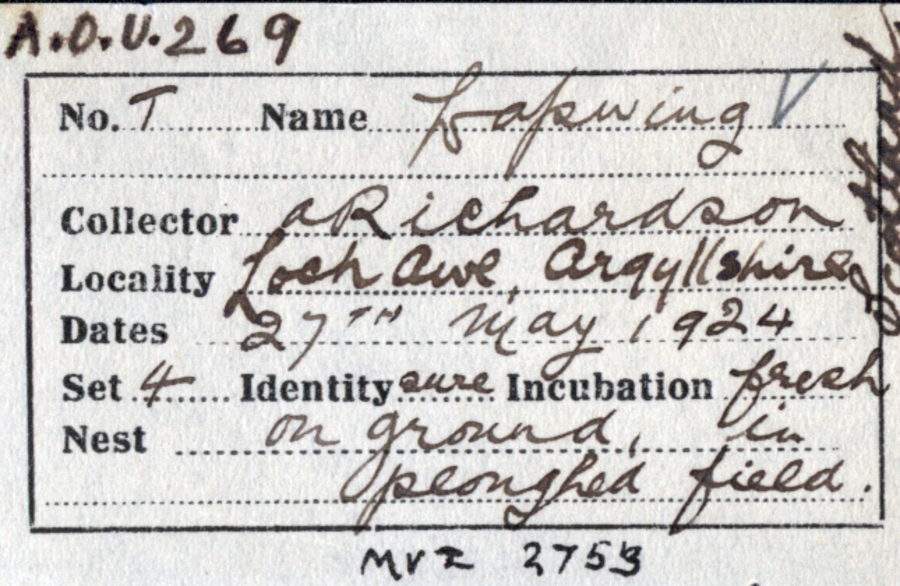 A.O.U.269
No. T Name Lapwing
Collector A Richardson
Locality Loch Awe, Argyllshire
Scotland
Dates 27TH May 1924
Set 4 Identity sure Incubation fresh
Nest on ground, in
ploughed field.
MVZ 2753